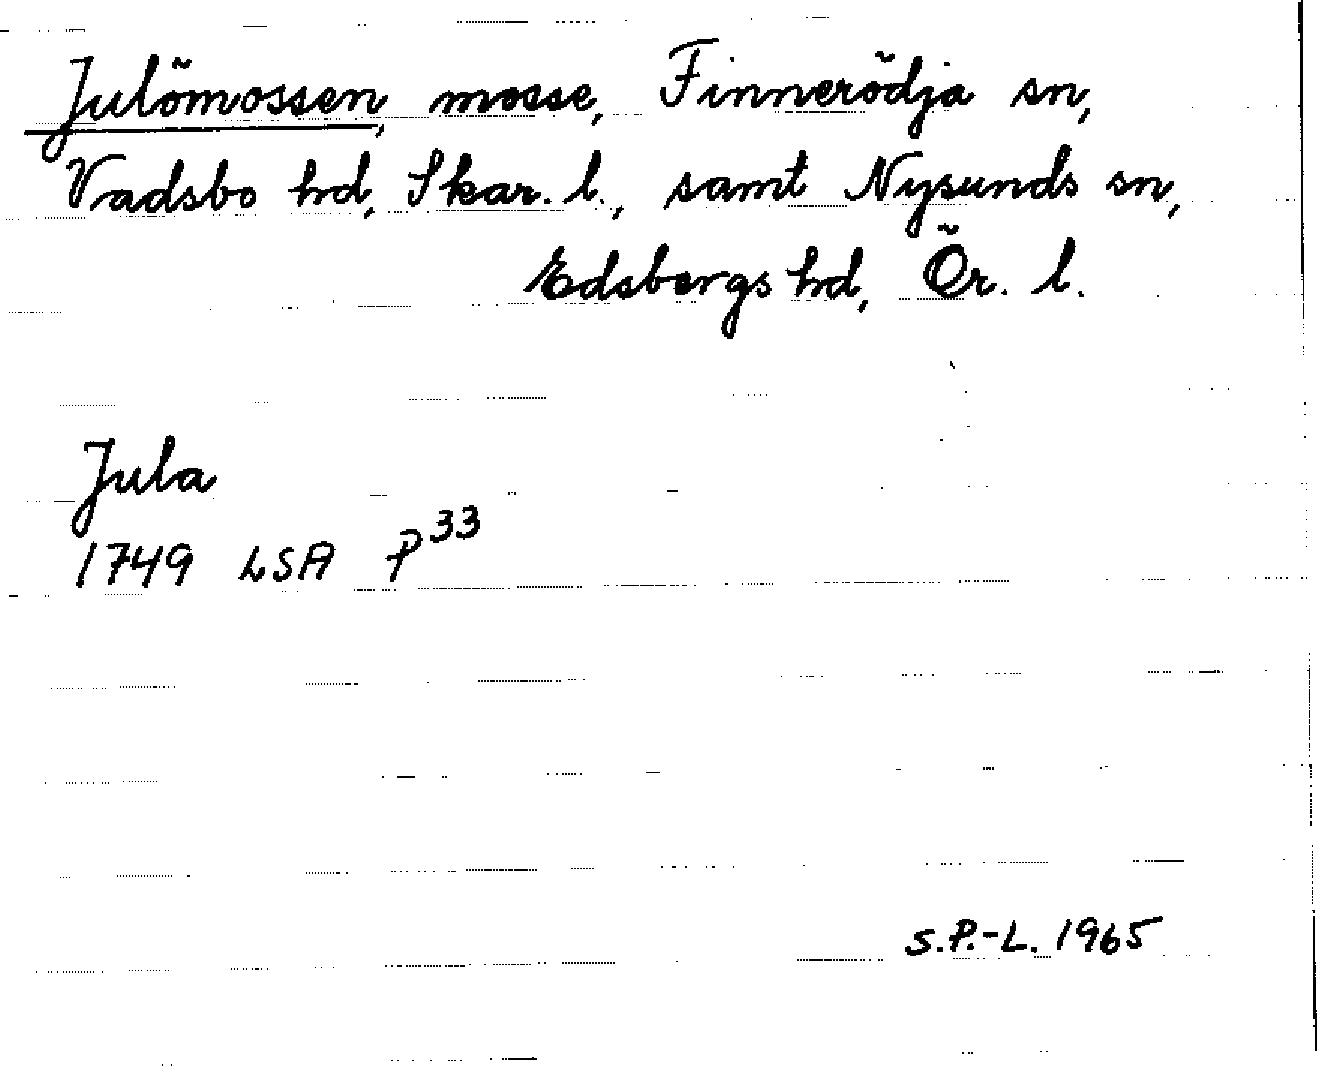 Julömossen, mosse, Finnerödja sn,
Vadsbo hd, Skar. l., samt Nysunds sn,
Edsbergs hd, Ör. l.
Jula
1749 LSA P³³
S.P.-L. 1965